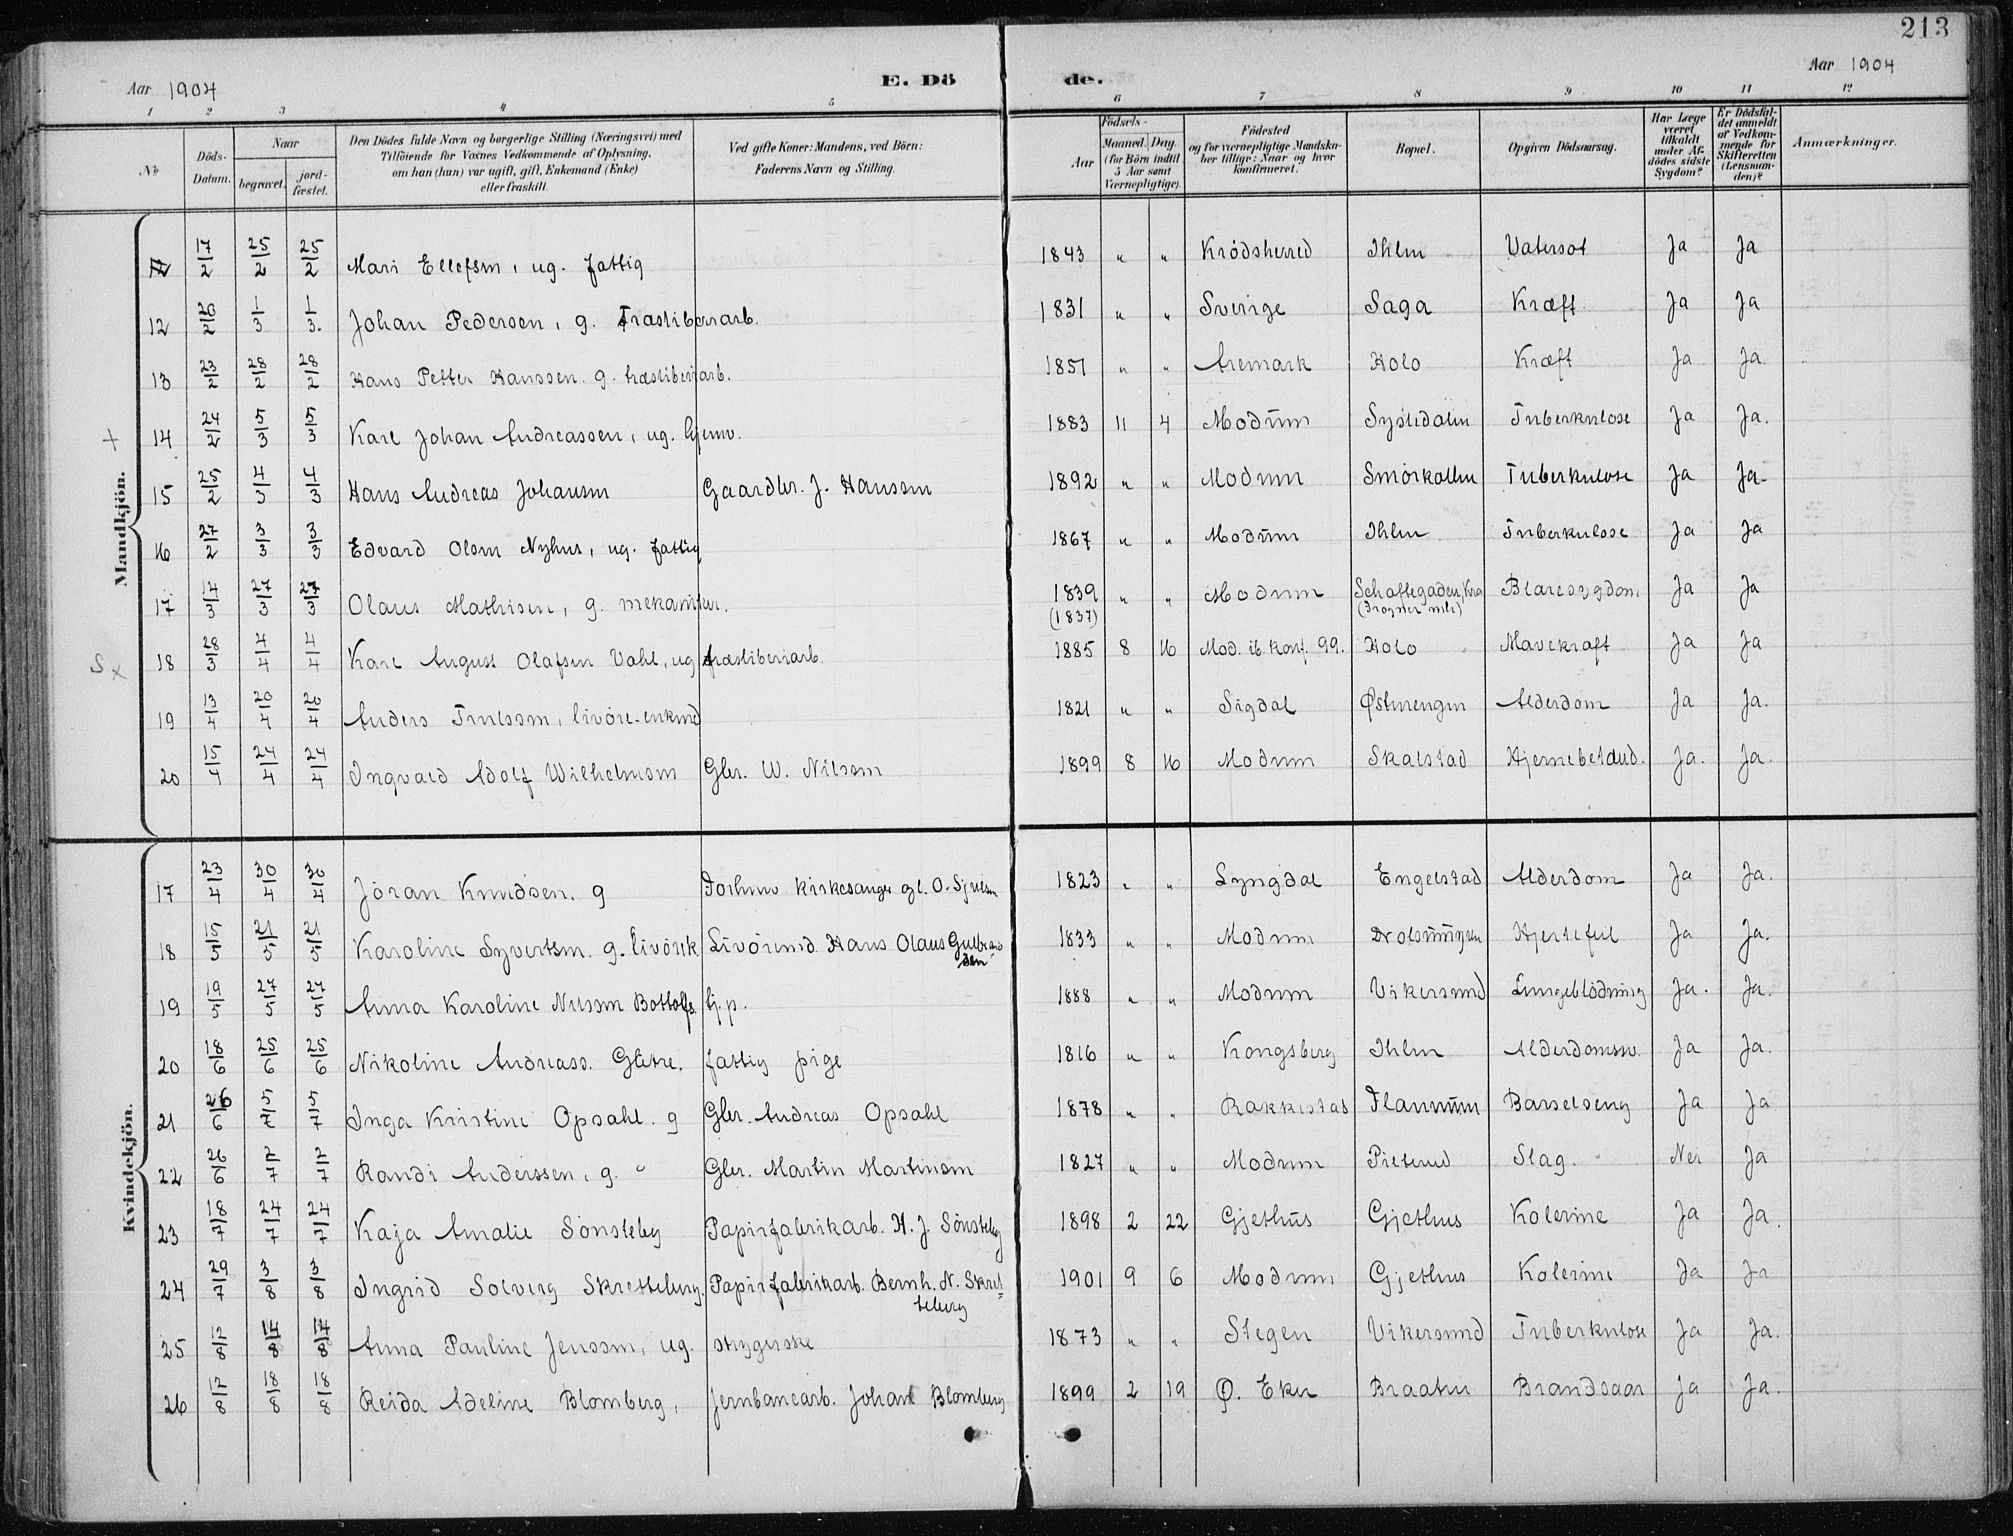 213
Aar 1904 E. Dö de. Aar 1904
1 2 3 4 5 6 7 8 9 10 11 12
No
Döds-Datum.
Naar
begravet. jordfæstet.
Den Dödes fulde Navn og borgerlige Stilling (Næringsvei) med
Tilföiende for Voxnes Vedkommende af Oplysning,
om han (hun) var ugift, gift, Enkemand (Enke)
eller fraskilt.
Ved gifte Koner: Mandens, ved Börn:
Faderens Navn og Stilling.
Födsels-
Aar Maaned. Dag.
(for Börn indtil
5 Aar samt
Værnepligtige).
Födested
og for værnepligtige Mandskaber tillige: Naar og hvor konfirmeret.
Bopæl.
Opgiven Dödsaarsag.
Har Læge været tilkaldt under Afdödes sidste Sygdom?
Er Dödsfaldet anmeldt af Vedkommende for Skifteretten (Lensmanden)?
Anmærkninger.
Mandkjön.
17/2 25/2 25/2 Mari Ellefsen, ug. fattig 1843 " " Krødsherred Ihlen Vatersot Ja Ja
12 26/2 1/3 1/3. Johan Pedersen, g. Træsliberiarb. 1831 " " Sverige Saga Kræft Ja Ja
13 23/2 28/2 28/2 Hans Petter Hanssen. g. træsliberiarb. 1851 " " Aremark Holo Kræft Ja Ja.
+ 14 24/2 5/3 5/3 Karl Johan Andreassen, ug. Gjemv. 1883 11 4 Modum Sysledalen Tuberkulose Ja Ja.
15 25/2 4/3 4/3 Hans Andreas Johansen Gaardbr. J. Hanssen 1892 " " Modum Smørkollen Tuberkulose Ja Ja
16 27/2 3/3 3/3 Edvard Olsen Nyhus, ug. fattig 1867 " " Modum Ihlen Tuberkulose Ja Ja
17 17/3 27/3 27/3 Olaus Mathisen, g. mekaniker. 1839 (1837) " " Modum Schaftegaden, Kra Blæresygdom Ja Ja
S x 18 28/3 4/4 4/4 Karl August Olafsen Vahl, ug træsliberiarb. 1885 8 16 Mod. ib. konf. 99. Holo Mavekræft Ja Ja
19 13/4 20/4 20/4 Anders Trulssen, livøre-enkmd 1821 " " Sigdal Østmengen Alderdom Ja Ja.
20 15/4 24/4 24/4 Ingvald Adolf Wilhelmsen Gbr. W. Nilssen 1899 8 16 Modum Skalstad Hjernebetænd. Ja. Ja.
Kvindekjön.
17 23/4 30/4 30/4 Jöran Knudsen. g Forhenv kirkesanger gl. O. Sjulsen 1823 " " Lyngdal Engelstad Alderdom Ja Ja.
18 15/5 21/5 21/5 Karoline Syvertsen. g. livørek Livøremd. Hans Olaus Gulbrandsen 1833 " " Modum Hjertefeil Ja Ja.
19 19/5 27/5 27/5 Anna Karoline Nilssen Bottolfs. tj.p. 1888 " " Modum Vikersund Lungeblödning Ja. Ja.
20 18/6 25/6 25/6 Nikoline Andreass. Glitre. fattig pige 1816 " " Kongsberg Ihlen Alderdomssv. Ja Ja.
21 26/6 5/7 5/7 Inga Kristine Opsahl. g Gbr. Andreas Opsahl 1878 " " Rakkestad Flannum Barselseng Ja Ja
22 26/6 2/7 2/7 Randi Anderssen, g. " Gbr. Martin Martinsen 1827 " " Modum Pieterud Slag. Nei Ja
23 18/7 24/7 24/7 Kaja Amalie Sönsteby Papirfabrikarb. H. J. Sönsteby 1898 2 22 Gjethus Gjethus Kolerine Ja Ja.
24 29/7 3/8 3/8 Ingrid Solveig Skretteberg. Papirfabrikarb. Bernh. N. Skretteberg 1901 9 6 Modum Gjethus Kolerine Ja Ja
25 12/8 17/8 17/8 Anna Pauline Jenssen, ug. strygerske 1873 " " Stegen Vikersund Tuberkulose Ja Ja.
26 12/8 18/8 18/8 Reida Adeline Blomberg, Jernbanearb. Johan Blomberg 1899 2 19 Ø. Eker Braaten Brandsaar Ja Ja.